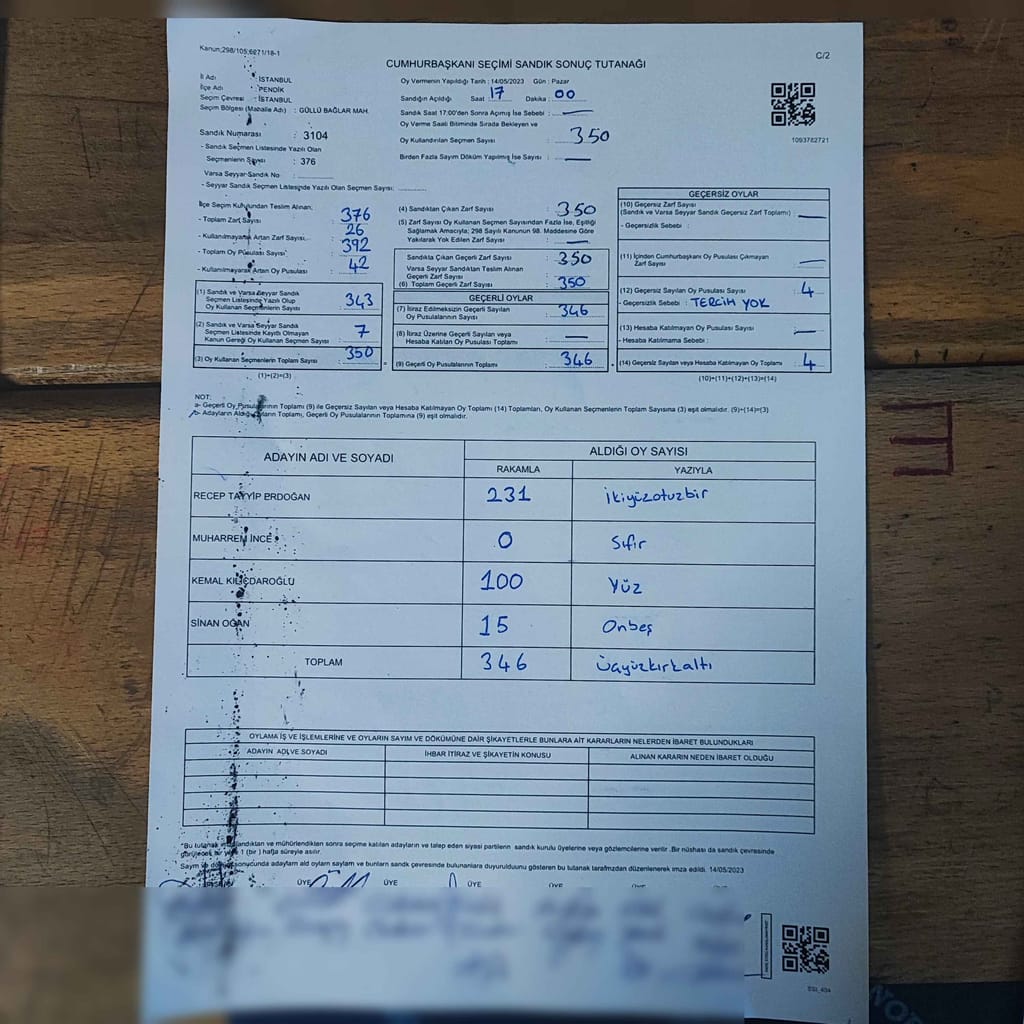 Kanun;298/105;6271/18-1
C/2
CUMHURBAŞKANI SEÇİMİ SANDIK SONUÇ TUTANAĞI
İl Adı : İSTANBUL
İlçe Adı : PENDİK
Seçim Çevresi : İSTANBUL
Seçim Bölgesi (Mahalle Adı) : GÜLLÜ BAĞLAR MAH.
Sandık Numarası : 3104
- Sandık Seçmen Listesinde Yazılı Olan
Seçmenlerin Sayısı : 376
Varsa Seyyar Sandık No :
- Seyyar Sandık Seçmen Listesinde Yazılı Olan Seçmen Sayısı:
Oy Vermenin Yapıldığı Tarih : 14/05/2023 Gün : Pazar
Sandığın Açıldığı Saat : 17 Dakika : 00
Sandık Saat 17:00'den Sonra Açımış İse Sebebi : —
Oy Verme Saati Bitiminde Sırada Bekleyen ve
Oy Kullandırılan Seçmen Sayısı : 350
Birden Fazla Sayım Döküm Yapılmış İse Sayısı : —
1093782721
İlçe Seçim Kurulundan Teslim Alınan;
- Toplam Zarf Sayısı : 376
- Kullanılmayarak Artan Zarf Sayısı : 26
- Toplam Oy Pusulası Sayısı : 392
- Kullanılmayarak Artan Oy Pusulası : 42
(1) Sandık ve Varsa Seyyar Sandık
Seçmen Listesinde Yazılı Olup
Oy Kullanan Seçmenlerin Sayısı : 343
(2) Sandık ve Varsa Seyyar Sandık
Seçmen Listesinde Kayıtlı Olmayan
Kanun Gereği Oy Kullanan Seçmen Sayısı : 7
(3) Oy Kullanan Seçmenlerin Toplam Sayısı : 350
(1)+(2)=(3)
(4) Sandıktan Çıkan Zarf Sayısı : 350
(5) Zarf Sayısı Oy Kullanan Seçmen Sayısından Fazla İse, Eşitliği
Sağlamak Amacıyla; 298 Sayılı Kanunun 98. Maddesine Göre
Yakılarak Yok Edilen Zarf Sayısı : —
Sandıkta Çıkan Geçerli Zarf Sayısı : 350
Varsa Seyyar Sandıktan Teslim Alınan
Geçerli Zarf Sayısı :
(6) Toplam Geçerli Zarf Sayısı : 350
GEÇERLİ OYLAR
(7) İtiraz Edilmeksizin Geçerli Sayılan
Oy Pusulalarının Sayısı : 346
(8) İtiraz Üzerine Geçerli Sayılan veya
Hesaba Katılan Oy Pusulası Toplamı : —
(9) Geçerli Oy Pusulalarının Toplamı : 346
GEÇERSİZ OYLAR
(10) Geçersiz Zarf Sayısı
(Sandık ve Varsa Seyyar Sandık Geçersiz Zarf Toplamı) : —
- Geçersizlik Sebebi :
(11) İçinden Cumhurbaşkanı Oy Pusulası Çıkmayan
Zarf Sayısı : —
(12) Geçersiz Sayılan Oy Pusulası Sayısı : 4
- Geçersizlik Sebebi : TERCİH YOK
(13) Hesaba Katılmayan Oy Pusulası Sayısı : —
- Hesaba Katılmama Sebebi :
(14) Geçersiz Sayılan veya Hesaba Katılmayan Oy Toplamı : 4
(10)+(11)+(12)+(13)=(14)
NOT:
a- Geçerli Oy Pusulalarının Toplamı (9) ile Geçersiz Sayılan veya Hesaba Katılmayan Oy Toplamı (14) Toplamları, Oy Kullanan Seçmenlerin Toplam Sayısına (3) eşit olmalıdır. (9)+(14)=(3)
b- Adayların Aldığı Oyların Toplamı, Geçerli Oy Pusulalarının Toplamına (9) eşit olmalıdır.
ADAYIN ADI VE SOYADI
ALDIĞI OY SAYISI
RAKAMLA YAZIYLA
RECEP TAYYİP ERDOĞAN 231 ikiyüzotuzbir
MUHARREM İNCE 0 Sıfır
KEMAL KILIÇDAROĞLU 100 Yüz
SİNAN OĞAN 15 Onbeş
TOPLAM 346 üçyüzkırkaltı
OYLAMA İŞ VE İŞLEMLERİNE VE OYLARIN SAYIM VE DÖKÜMÜNE DAİR ŞİKAYETLERLE BUNLARA AİT KARARLARIN NELERDEN İBARET BULUNDUKLARI
ADAYIN ADI VE SOYADI İHBAR İTİRAZ VE ŞİKAYETİN KONUSU ALINAN KARARIN NEDEN İBARET OLDUĞU
"Bu tutanak imzalandıktan ve mühürlendikten sonra seçime katılan adayların ve talep eden siyasi partilerin sandık kurulu üyelerine veya gözlemcilerine verilir .Bir nüshası da sandık çevresinde
görülecek bir yere 1 (bir ) hafta süreyle asılır.
Sayım ve döküm sonucunda adayların aldı oyların sayıları ve bunların sandık çevresinde bulunanlara duyurulduunu gösteren bu tutanak tarafımızdan düzenlenerek imza edildi. 14/05/2023
ÜYE ÜYE ÜYE ÜYE ÜYE ÜYE